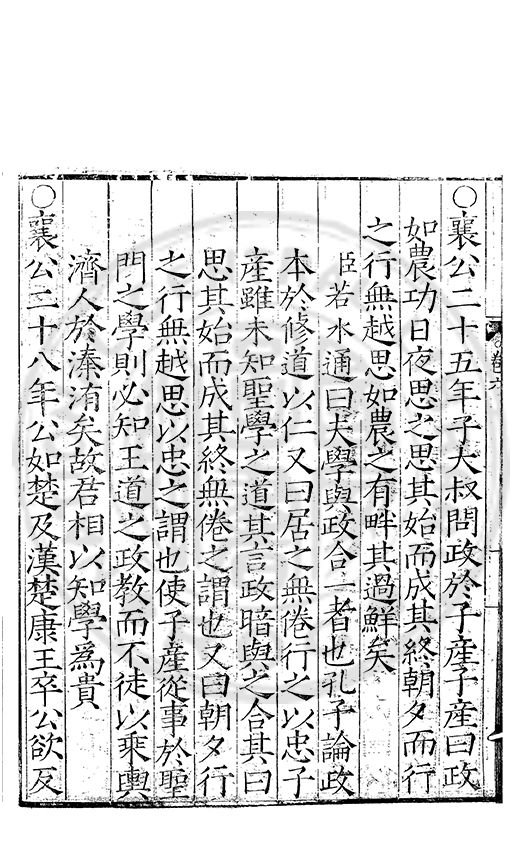 ○襄公二十五年子大叔問政於子產子產曰政
如農功日夜思之思其始而成其終朝夕而行
之行無越思如農之有畔其過鮮矣
臣若水通曰夫學與政合一者也孔子論政
本於修道以仁又曰居之無倦行之以忠子
產雖未知聖學之道其言政暗與之合其曰
思其始而成其終無倦之謂也又曰朝夕行
之行無越思以忠之謂也使子產從事於聖
門之學則必知王道之政教而不徒以乘輿
濟人於溱洧矣故君相以知學爲貴
○襄公二十八年公如楚及漢楚康王卒公欲反
卷六